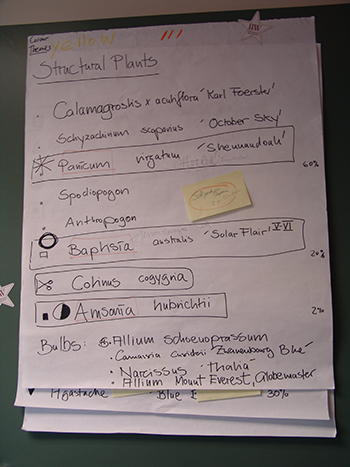 Colour
Themes
yellow
Structural Plants
Calamagrostis x acutiflora 'Karl Foerster'
Schyzachinum scoparius 'October Sky'
Panicum virgatum 'Shennandoah'
60%
Spodiopogon
Anthropogon
Baphsia australis 'Solar Flair' V-VI
20%
Cotinus cogygna
Amsonia hubrichtii
2%
Bulbs: Allium Schoenoprassum
Camassia Zwanenburg Blue
Narcissus Thalia
Allium Mount Everest, Globemaster
Agastache Blue 30%